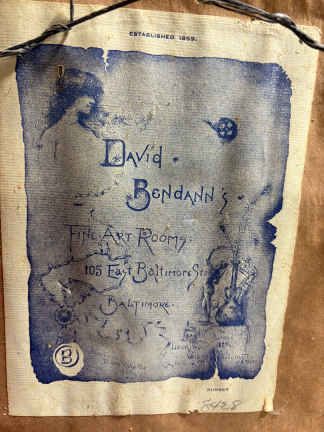 ESTABLISHED 1859.
DAVID
BENDANN'S
FINE ART ROOMS
105 EAST BALTIMORE ST.
BALTIMORE.
B
NUMBER